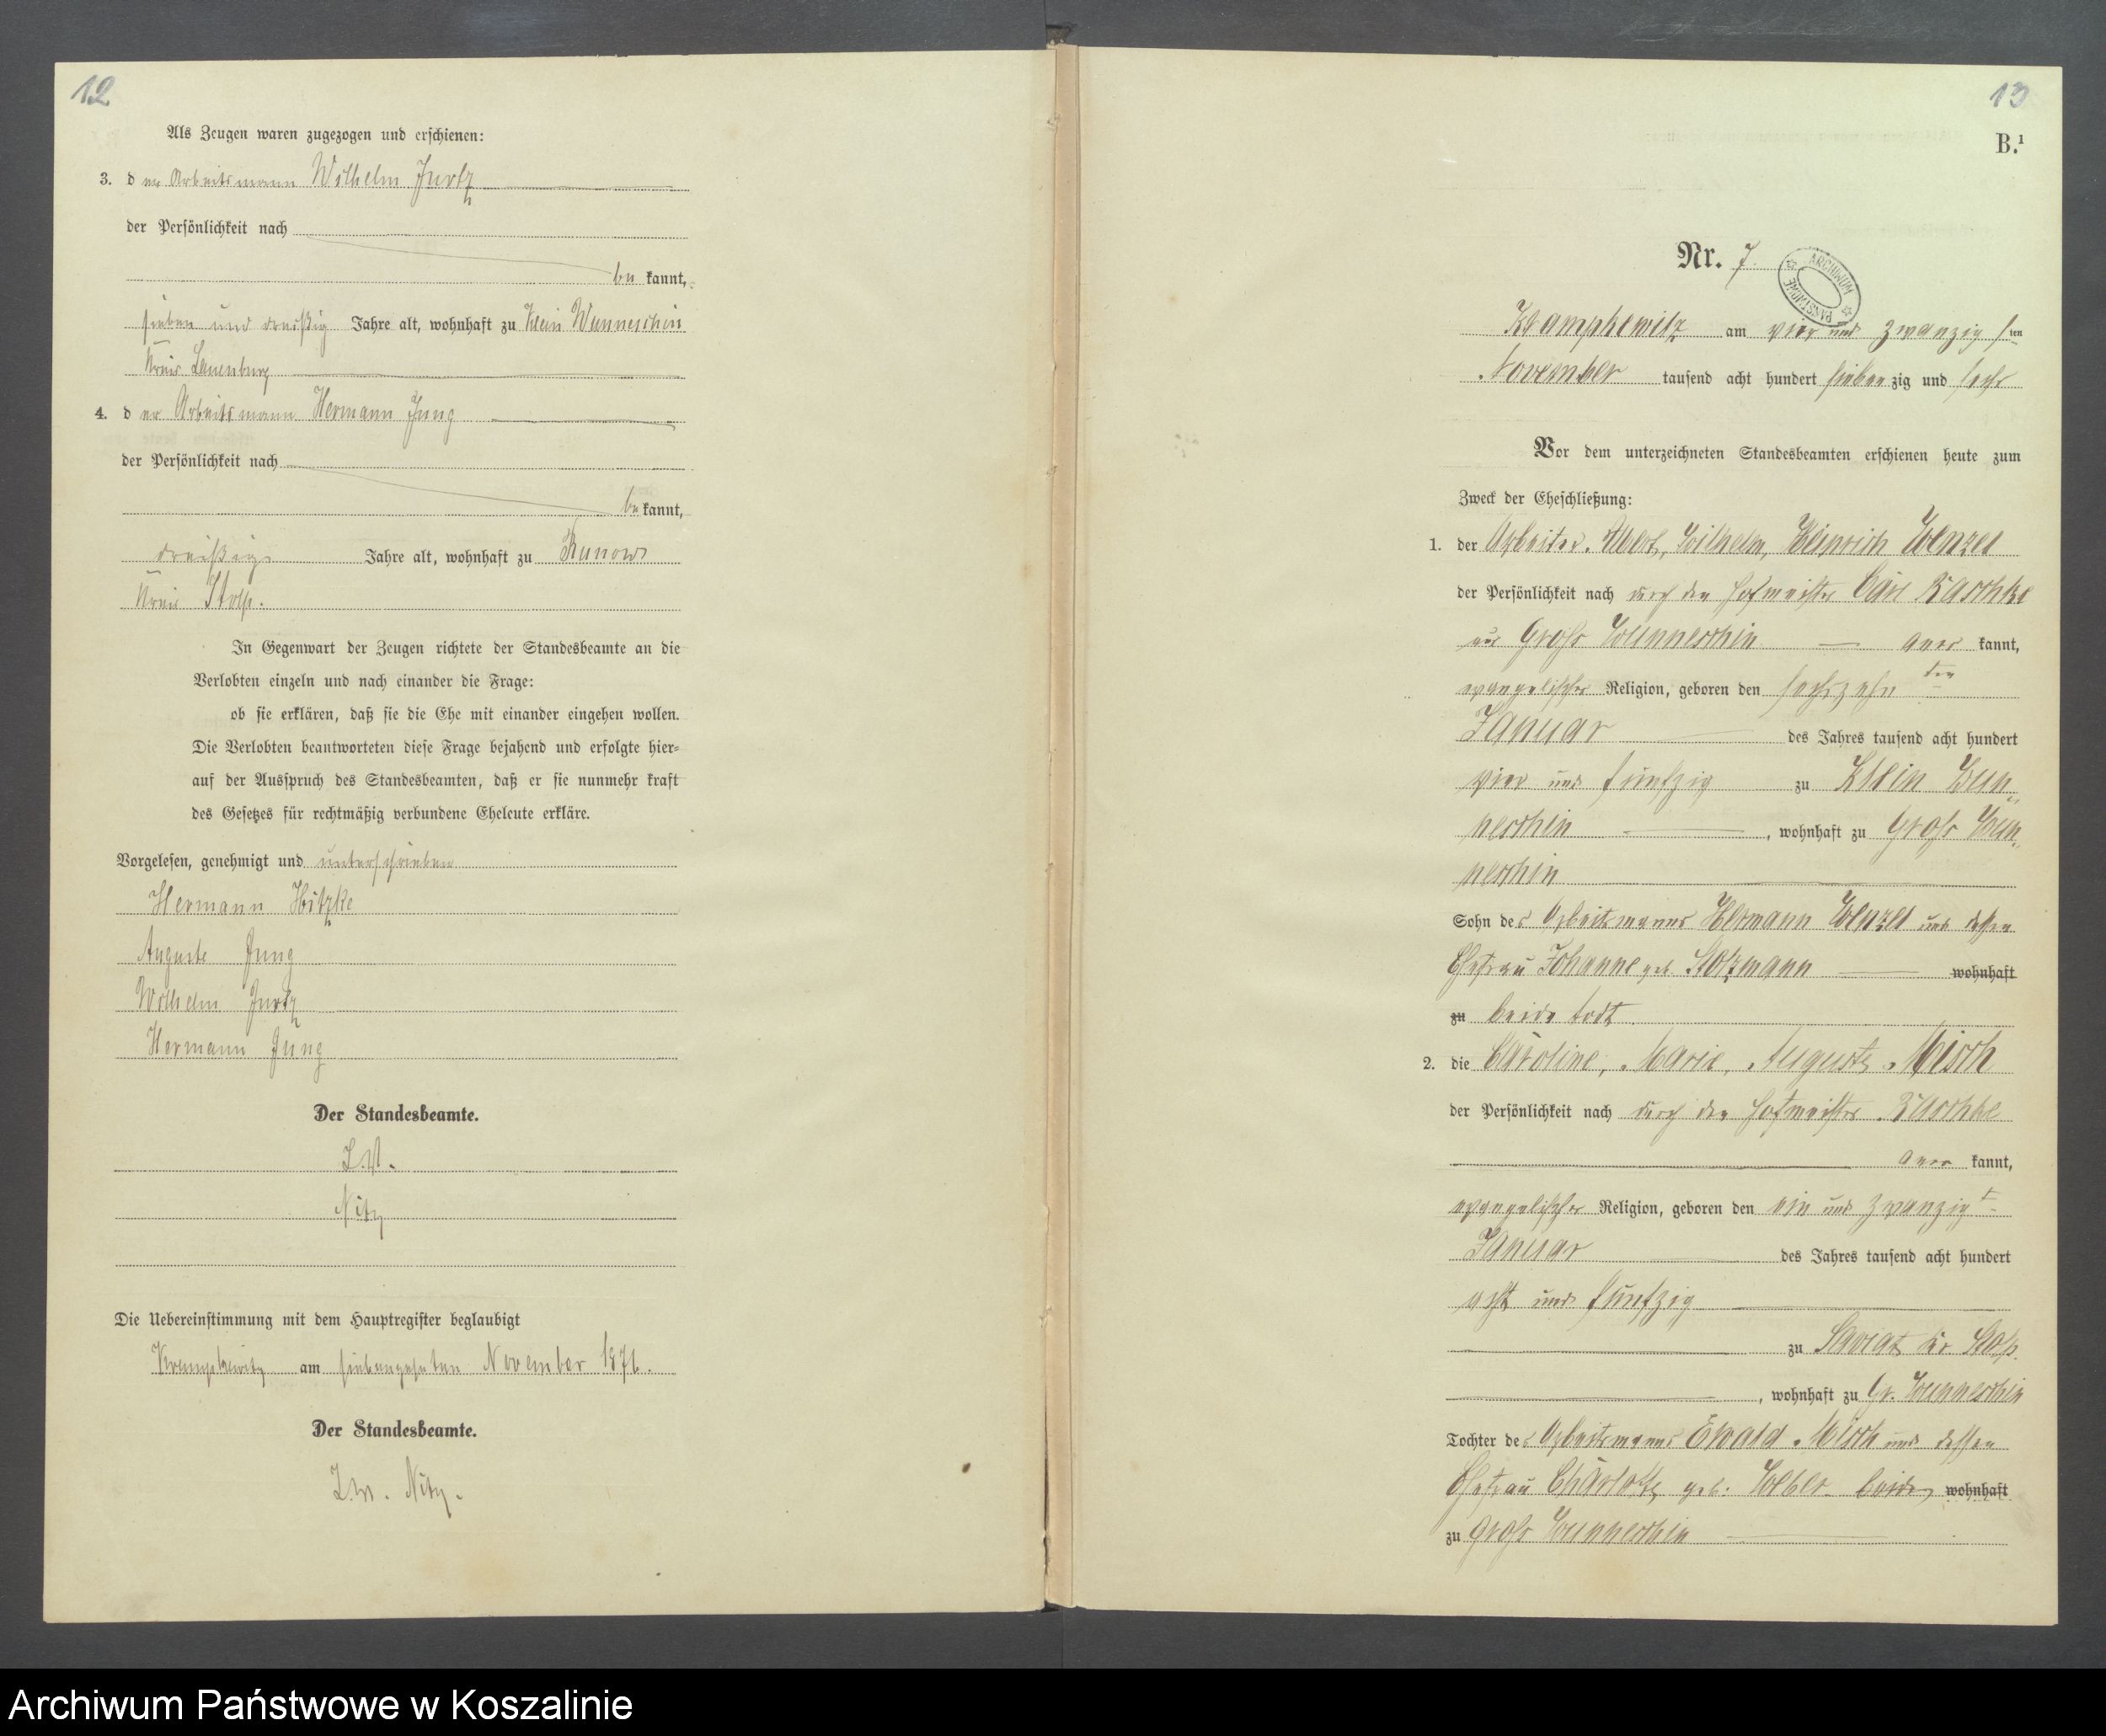 12
Als Zeugen waren zugezogen und erschienen:
3. der Arbeitsmann Wilhelm Jurtz
der Persönlichkeit nach
bekannt,
sieben und dreißig Jahre alt, wohnhaft zu Klein Wunneschin
Kreis Lauenburg
4. der Arbeitsmann Hermann Jung
der Persönlichkeit nach
bekannt,
dreißig Jahre alt, wohnhaft zu Runow
Kreis Stolp.
In Gegenwart der Zeugen richtete der Standesbeamte an die
Verlobten einzeln und nach einander die Frage:
ob sie erklären, daß sie die Ehe mit einander eingehen wollen.
Die Verlobten beantworteten diese Frage bejahend und erfolgte hier-
auf der Ausspruch des Standesbeamten, daß er sie nunmehr kraft
des Gesetzes für rechtmäßig verbundene Eheleute erkläre.
Vorgelesen, genehmigt und unterschrieben
Hermann Hitzke
Auguste Jung
Wilhelm Jurtz
Hermann Jung
Der Standesbeamte.
Nitz
Die Uebereinstimmung mit dem Hauptregister beglaubigt
Krampkewitz am siebenzehnten November 1876.
Der Standesbeamte.
Nitz.
13
B.¹
Nr. 7.
ARCHIWUM PAŃSTWOWE
Krampkewitz am vier und zwanzigsten
November tausend acht hundert siebenzig und sechs
Vor dem unterzeichneten Standesbeamten erschienen heute zum
Zweck der Eheschließung:
1. der Arbeiter Albert, Wilhelm, Heinrich Wenzel
der Persönlichkeit nach durch den Hofmeister Carl Raschke
aus Groß Wunneschin anerkannt,
evangelischer Religion, geboren den sechszehnten
Januar des Jahres tausend acht hundert
vier und fünfzig zu Klein Wun-
neschin, wohnhaft zu Groß Wun-
neschin
Sohn des Arbeitsmanns Hermann Wenzel und dessen
Ehefrau Johanne geb. Stolzmann wohnhaft
zu beide todt.
2. die Caroline, Marie, Auguste Misch
der Persönlichkeit nach durch den Hofmeister Raschke
anerkannt,
evangelischer Religion, geboren den ein und zwanzigt
Januar des Jahres tausend acht hundert
acht und fünfzig
zu Saviat Kr. Stolp.
, wohnhaft zu Gr. Wunneschin
Tochter des Arbeitsmanns Ewald Misch und dessen
Ehefrau Charlotte geb. Weber beide wohnhaft
zu Groß Wunneschin
Archiwum Państwowe w Koszalinie